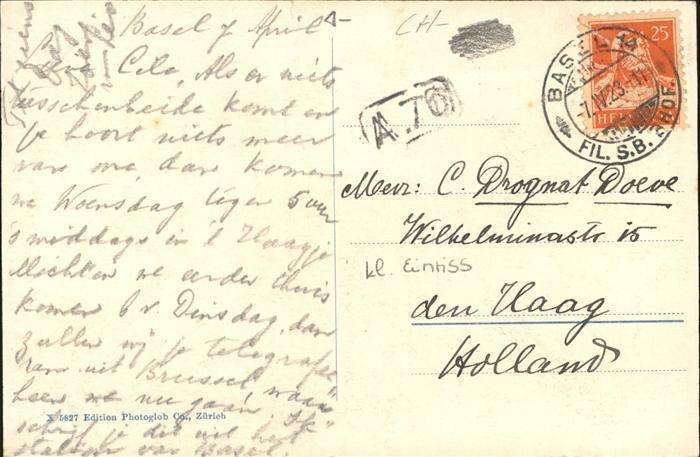 Basel 7 April
Lieve Cela, Als er niets
tusschenbeide komt en
je hoort niets meer
van ons, dan komen
we Woensdag tegen 5 uur
's middags in 't Haagje
Mochten we eerder thuis
komen b.v. Dinsdag, dan
zullen wij je telegrafe
ren uit Brussel, waar
heen we nu gaan. Ik
schrijf je dit uit het
station van Basel.
X 5827 Edition Photoglob Co., Zürich
CH-
A.T6
25
HELVETIA
BASEL 14
7.IV.23.-11
FIL. S.B. HOF
Mevr: C. Drognat Doeve
Wilhelminastr 15
kl. Einriss
den Haag
Holland